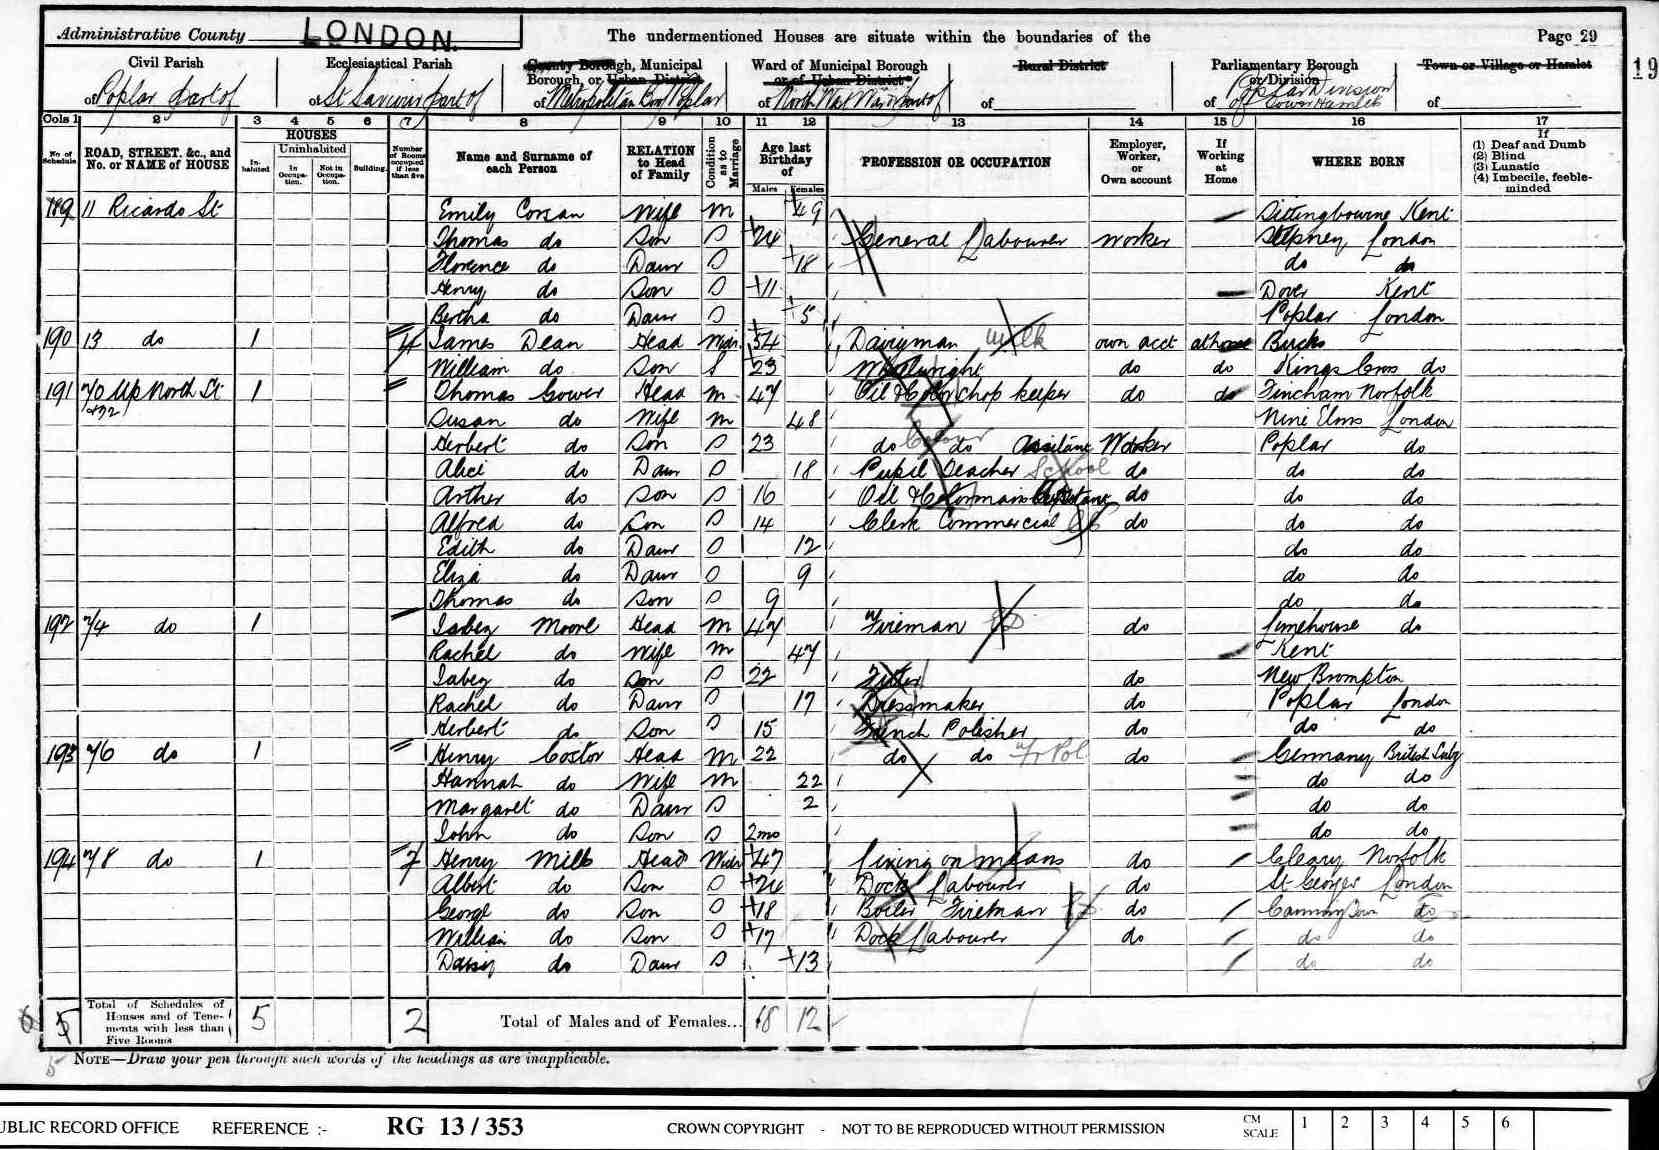 Administrative County LONDON. The undermentioned Houses are situate within the boundaries of the Page 29
19
Civil Parish Ecclesiastical Parish County Borough, Municipal Borough, or Urban District Ward of Municipal Borough or of Urban District Rural District Parliamentary Borough or Division Town or Village or Hamlet
of Poplar part of of St Saviours part of of Metropolitan Boro Poplar of North West Ward part of of of Poplar Division of Tower Hamlets of
Cols 1 2 3 4 5 6 7 8 9 10 11 12 13 14 15 16 17
No. of Schedule ROAD, STREET, &c., and No. or NAME of HOUSE HOUSES Inhabited Uninhabited In Occupation. Not in Occupation. Building. Number of Rooms occupied if less than five Name and Surname of each Person RELATION to Head of Family Condition as to Marriage Age last Birthday of Males Females PROFESSION OR OCCUPATION Employer, Worker, or Own account If Working at Home WHERE BORN If (1) Deaf and Dumb (2) Blind (3) Lunatic (4) Imbecile, feeble-minded
189 11 Ricardo St Emily Wife M 49 Sittingbourne Kent
Thomas do Son S 24 General Labourer Worker Stepney London
Florence do Daur S 18 do do
Henry do Son S 11 Dover Kent
Bertha do Daur S 5 Poplar London
190 13 do 1 4 James Dean Head Widr 54 Dairyman milk own acct at home Bucks
William do Son S 23 do do Kings Cross do
191 70 Up North St 1 Thomas Gower Head M 47 Oil & Color shop keeper do do Fincham Norfolk
& 72 Susan do Wife M 48 Nine Elms London
Herbert do Son S 23 do Colour do Assitant Worker Poplar do
Alice do Daur S 18 Pupil Teacher School do do do
Arther do Son S 16 Oil & Colormans Assistant do do do
Alfred do Son S 14 Clerk Commercial do do do
Edith do Daur S 12 do do
Eliza do Daur S 9 do do
Thomas do Son S 9 do do
192 74 do 1 Jabez Moore Head M 47 Fireman do Limehouse do
Rachel do Wife M 47 Kent
Jabez do Son S 22 Fitter do New Brompton
Rachel do Daur S 17 Dressmaker do Poplar London
Herbert do Son S 15 French Polisher do do do
193 76 do 1 Henry Costor Head M 22 do do Fr Pol do Germany British Subj
Hannah do Wife M 22 do do
Margaret do Daur S 2 do do
John do Son S 2mo do do
194 78 do 1 Henry Mills Head Widr 47 Living on means do Norfolk
Albert do Son S 24 Dock Labourer do St Georges London
George do Son S 18 Boiler Fireman do Canning Town do
William do Son S 17 Dock Labourer do do do
Daisy do Daur S 13 do do
5 Total of Schedules of Houses and of Tenements with less than Five Rooms 5 2 Total of Males and of Females... 18 12
NOTE—Draw your pen through such words of the headings as are inapplicable.
PUBLIC RECORD OFFICE REFERENCE :- RG 13 / 353 CROWN COPYRIGHT - NOT TO BE REPRODUCED WITHOUT PERMISSION CM SCALE 1 2 3 4 5 6